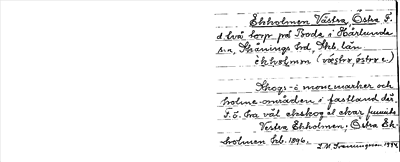 Ekholmen Västra, Östra f.
d. två torp på Boda i Härlunda
s:n, Skånings hd, Skb. län
ekholmen (västre, östre)
Skogs- o mossmarker och
holme-områden i fastland där.
F. ö. bra väl ekskog el ekar funnits
Vestra Ekholmen; Östra Ek-
holmen Jrb. 1896.